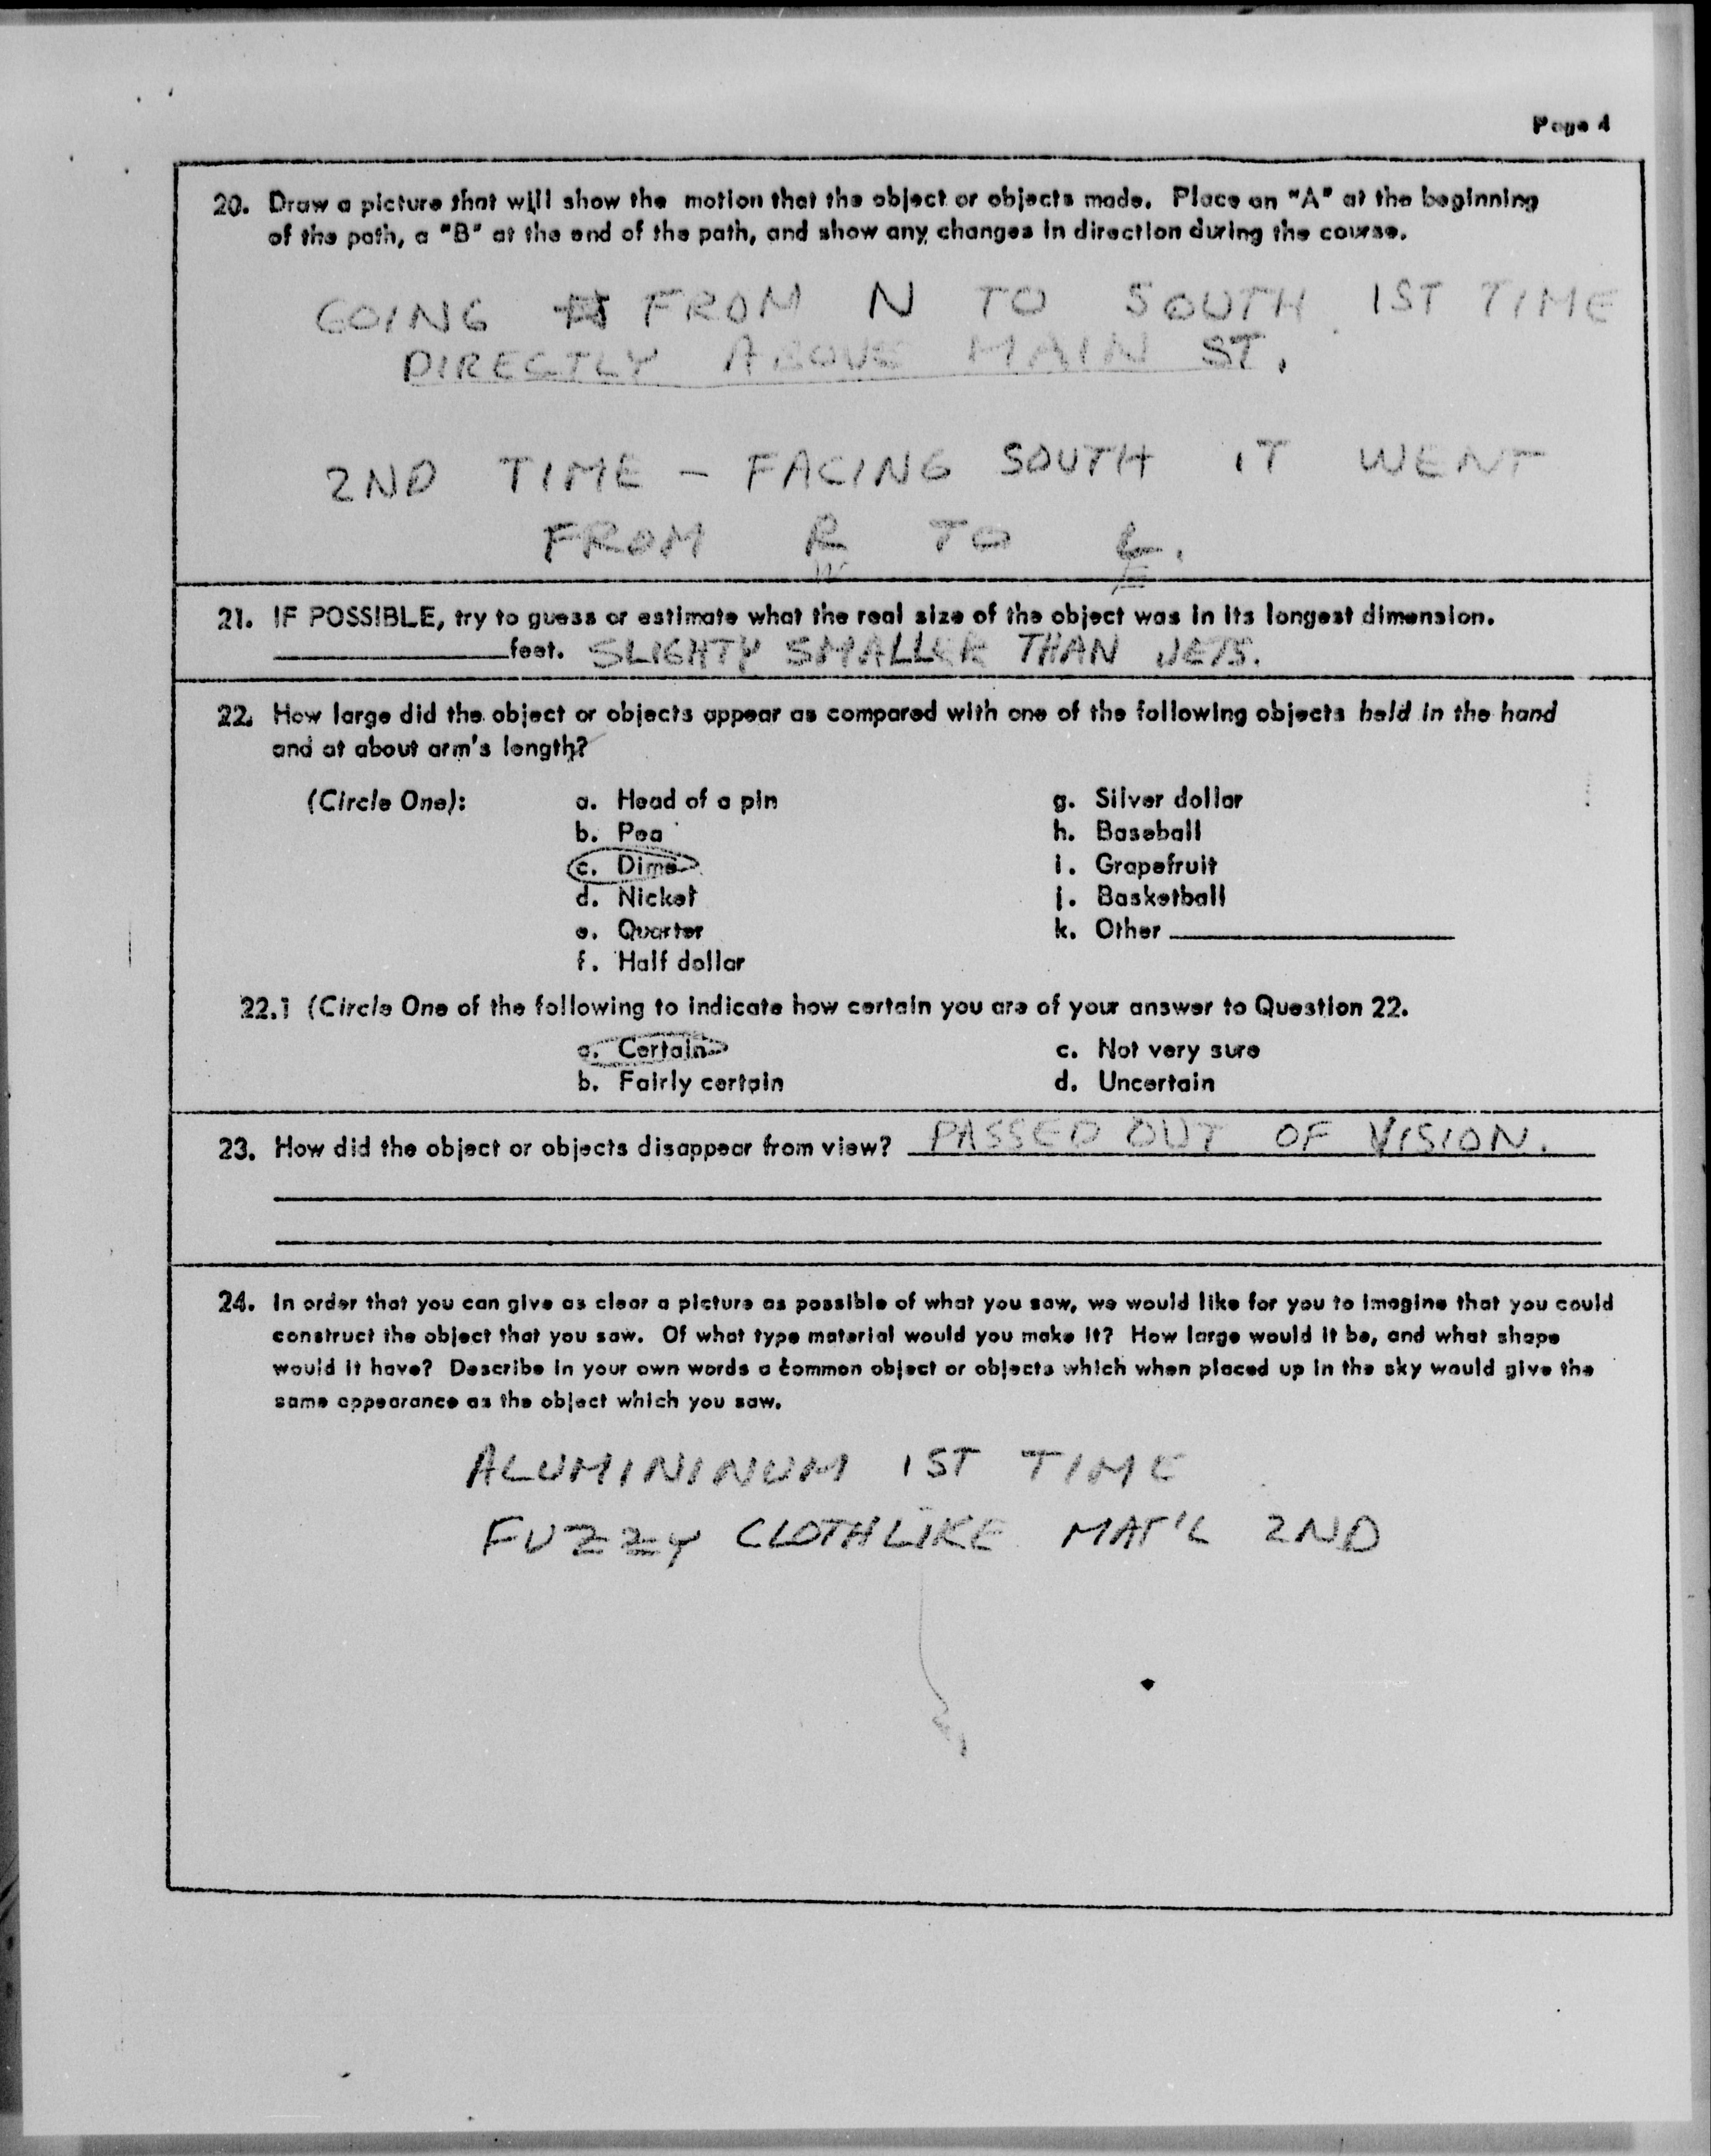 Page 4
20. Draw a picture that will show the motion that the object or objects made. Place an "A" at the beginning
of the path, a "B" at the end of the path, and show any changes in direction during the course.
GOING FROM N TO SOUTH 1ST TIME
DIRECTLY ABOVE MAIN ST.
2ND TIME - FACING SOUTH IT WENT
FROM R TO L.
W E
21. IF POSSIBLE, try to guess or estimate what the real size of the object was in its longest dimension.
____________feet. SLIGHTY SMALLER THAN JETS.
22. How large did the object or objects appear as compared with one of the following objects held in the hand
and at about arm's length?
(Circle One): a. Head of a pin g. Silver dollar
b. Pea h. Baseball
c. Dime i. Grapefruit
d. Nickel j. Basketball
e. Quarter k. Other ____________
f. Half dollar
22.1 (Circle One of the following to indicate how certain you are of your answer to Question 22.
a. Certain c. Not very sure
b. Fairly certain d. Uncertain
23. How did the object or objects disappear from view? PASSED OUT OF VISION.
24. In order that you can give as clear a picture as possible of what you saw, we would like for you to imagine that you could
construct the object that you saw. Of what type material would you make it? How large would it be, and what shape
would it have? Describe in your own words a common object or objects which when placed up in the sky would give the
same appearance as the object which you saw.
ALUMININUM 1ST TIME
FUZZY CLOTHLIKE MAT'L 2ND